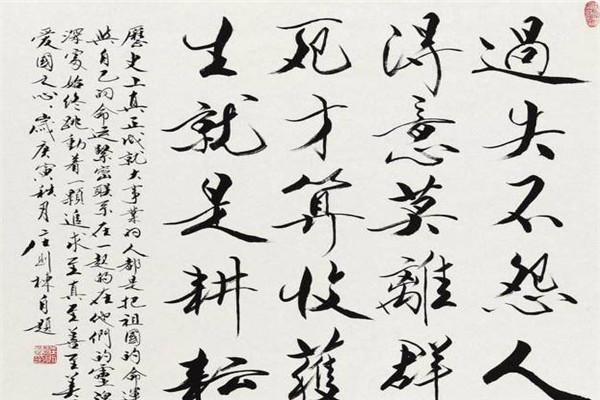 過失不怨人
得意莫離群
死才算收獲
生就是耕耘
歷史上真正成就大事業的人都是把祖國的命運
與自己的命运緊密联系在一起的在他們的靈魂
深處始終跳動着一顆追求至真至善至美
愛國之心歲庚寅秋月庄則棟自題